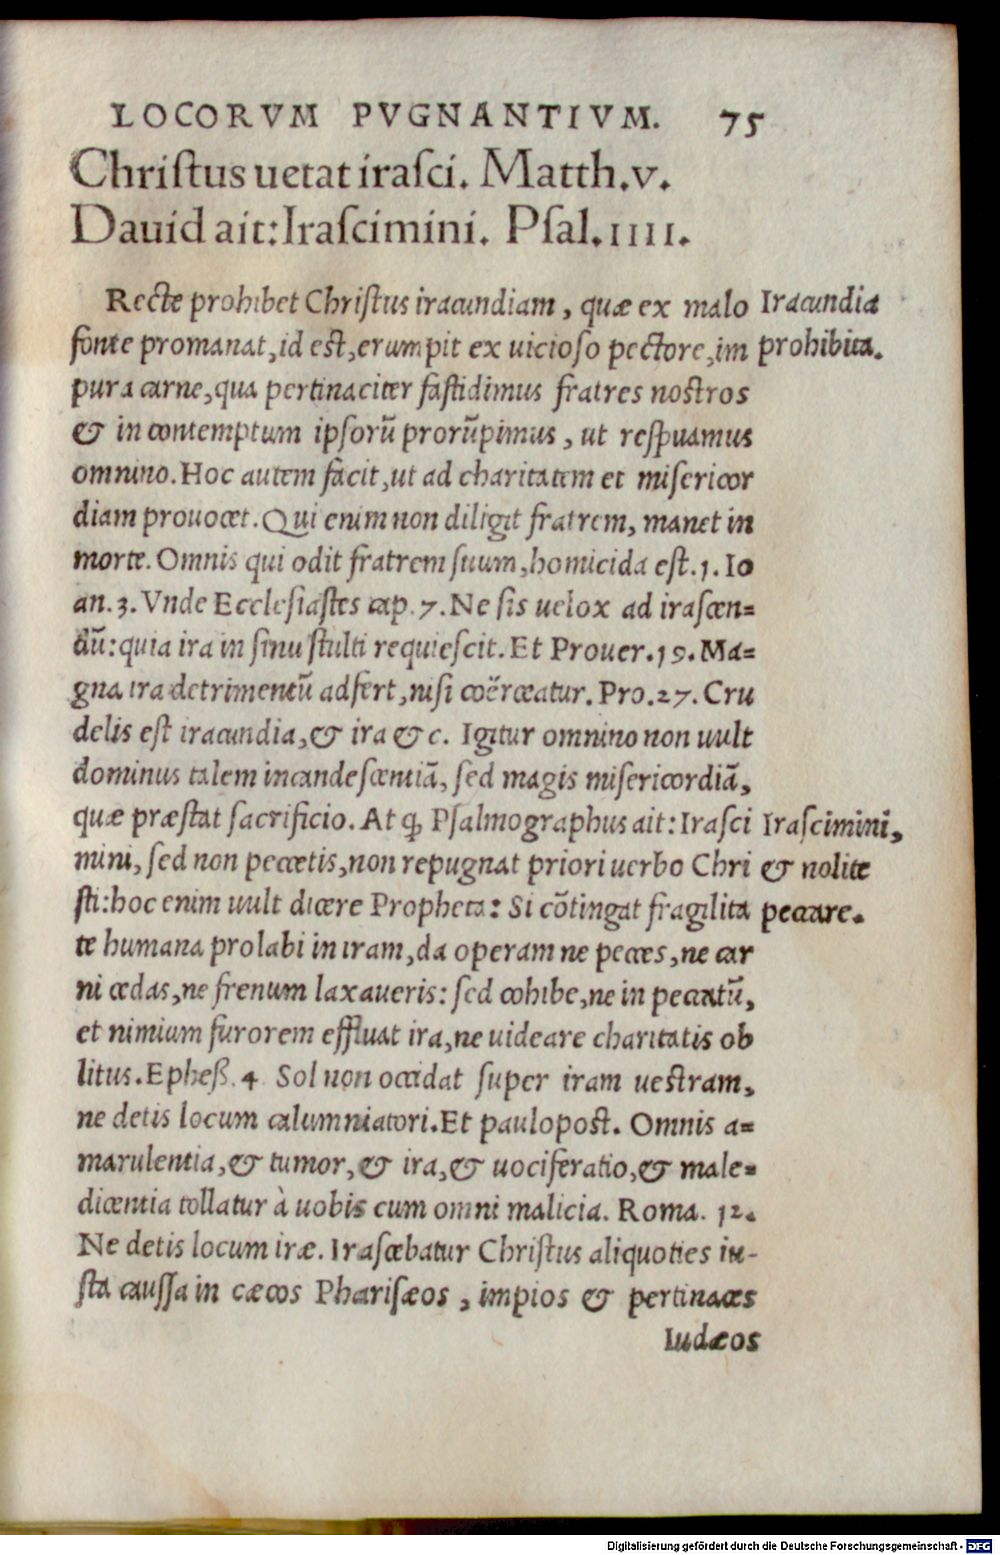 LOCORVM PVGNANTIVM. 75
Chriſtus uetat iraſci. Matth.v.
Dauid ait: Iraſcimini. Pſal.IIII.
Recte prohibet Chriſtus iracundiam, quæ ex malo
fonte promanat, id eſt, erumpit ex uicioſo pectore, im
pura carne, qua pertinaciter faſtidimus fratres noſtros
& in contemptum ipſorū prorūpimus, ut reſpuamus
omnino. Hoc autem facit, ut ad charitatem et miſericor
diam prouocet. Qui enim non diligit fratrem, manet in
morte. Omnis qui odit fratrem ſuum, homicida eſt. 1. Io
an. 3. Vnde Eccleſiaſtes cap. 7. Ne ſis uelox ad iraſcen=
dū: quia ira in ſinu ſtulti requieſcit. Et Prouer. 19. Ma=
gna ira detrimentū adfert, niſi coërceatur. Pro. 27. Cru
delis eſt iracundia, & ira & c. Igitur omnino non uult
dominus talem incandeſcentiā, ſed magis miſericordiā,
quæ præſtat ſacrificio. At ꝙ Pſalmographus ait: Iraſci
mini, ſed non peccetis, non repugnat priori uerbo Chri
ſti: hoc enim uult dicere Propheta: Si cōtingat fragilita
te humana prolabi in iram, da operam ne pecces, ne car
ni cedas, ne frenum laxaueris: ſed cohibe, ne in peccatū,
et nimium furorem effluat ira, ne uideare charitatis ob
litus. Epheß. 4 Sol non occidat ſuper iram ueſtram,
ne detis locum calumniatori. Et paulopoſt. Omnis a=
marulentia, & tumor, & ira, & uociferatio, & male=
dicentia tollatur à uobis cum omni malicia. Roma. 12.
Ne detis locum iræ. Iraſcebatur Chriſtus aliquoties iu-
ſta cauſſa in cæcos Phariſæos, impios & pertinaces
Iudæos
Iracundia
prohibita.
Iraſcimini,
& nolite
peccare.
Digitalisierung gefördert durch die Deutsche Forschungsgemeinschaft - DFG